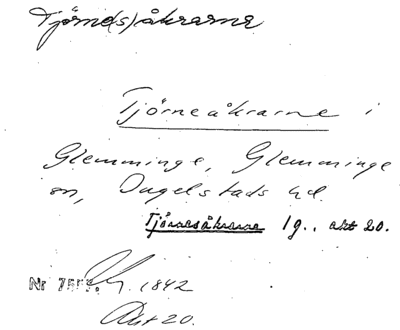 Tjörne(s)åkrarne
Tjörneåkrarne i
Glemminge, Glemminge
sn, Ingelstads hd.
Tjörnesåkrarne lg., akt 20.
Nr 1842
Akt 20.